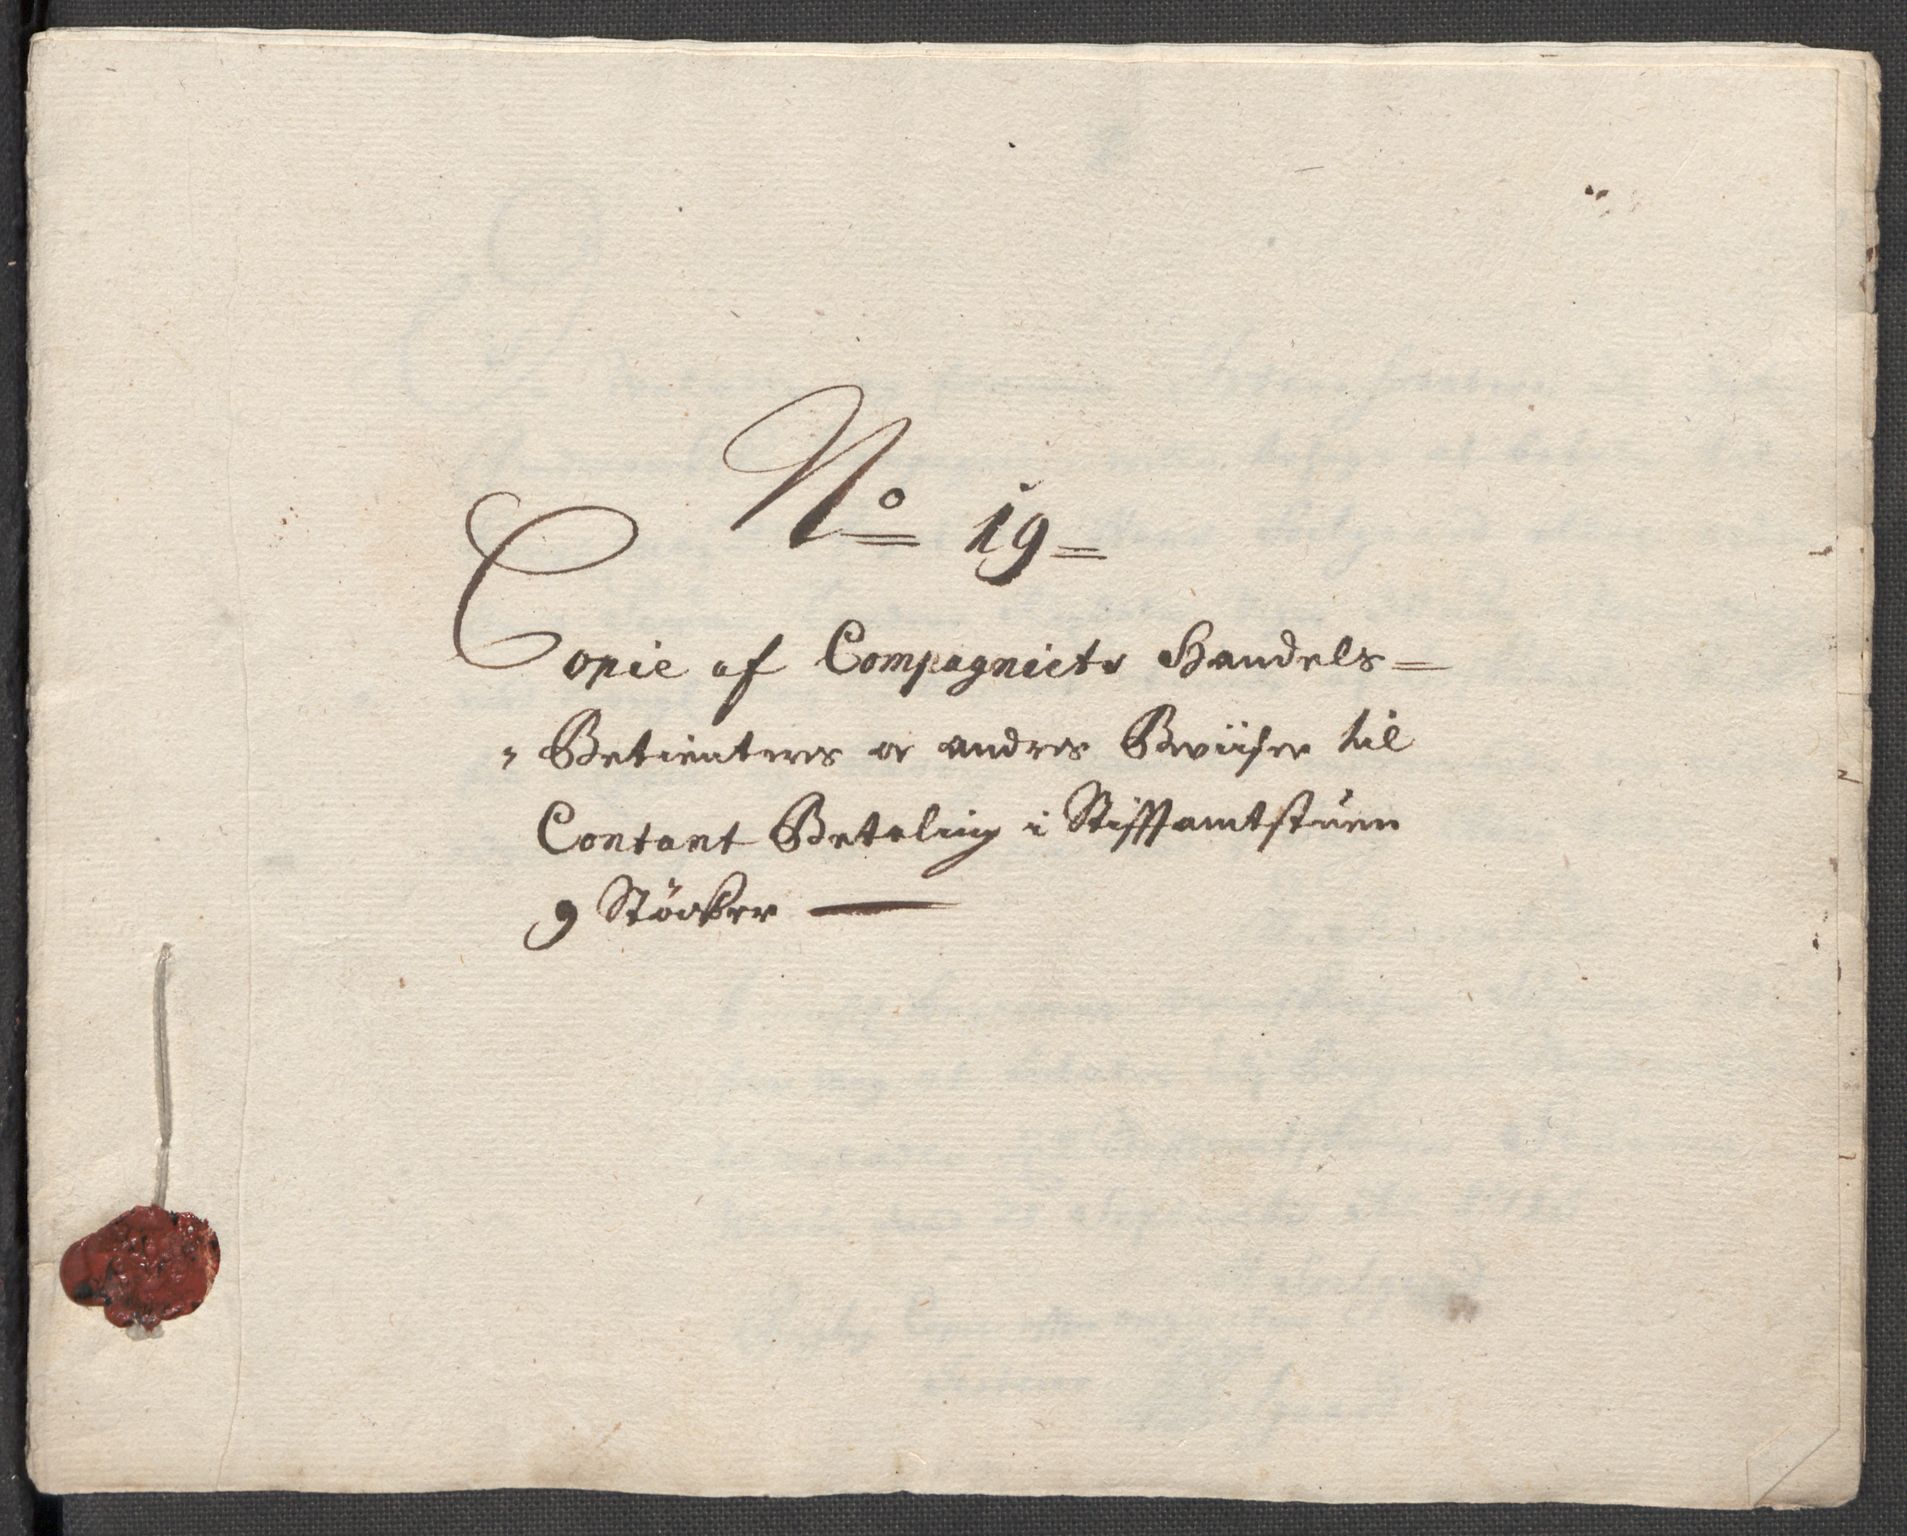 No 19
Copie af Compagniets Handels
Betienteres og andres Beviiser til
Contant Betaling i Stifftamtstuen
9 Stöcker